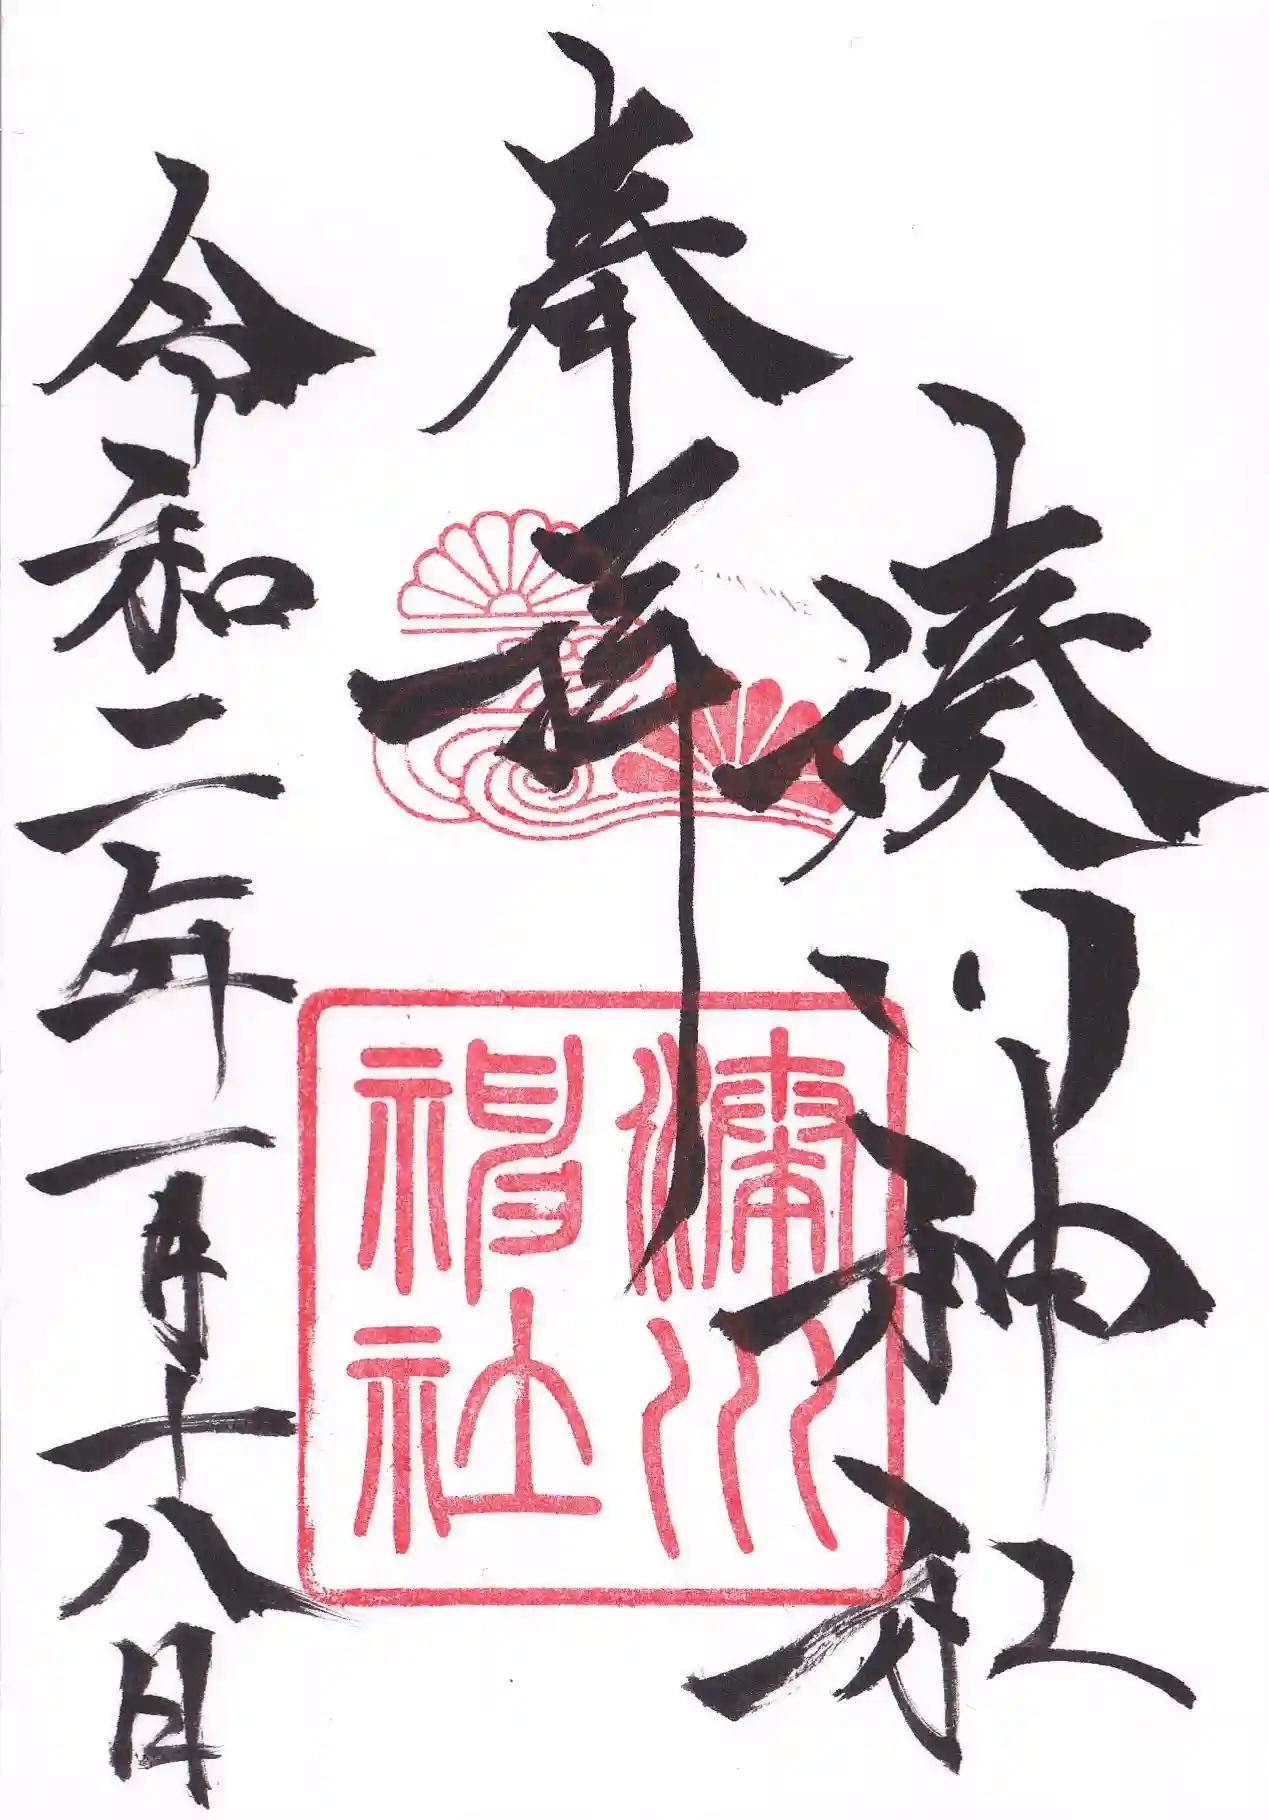 湊川神社
奉拝
湊川
神社
令和二年一月十八日